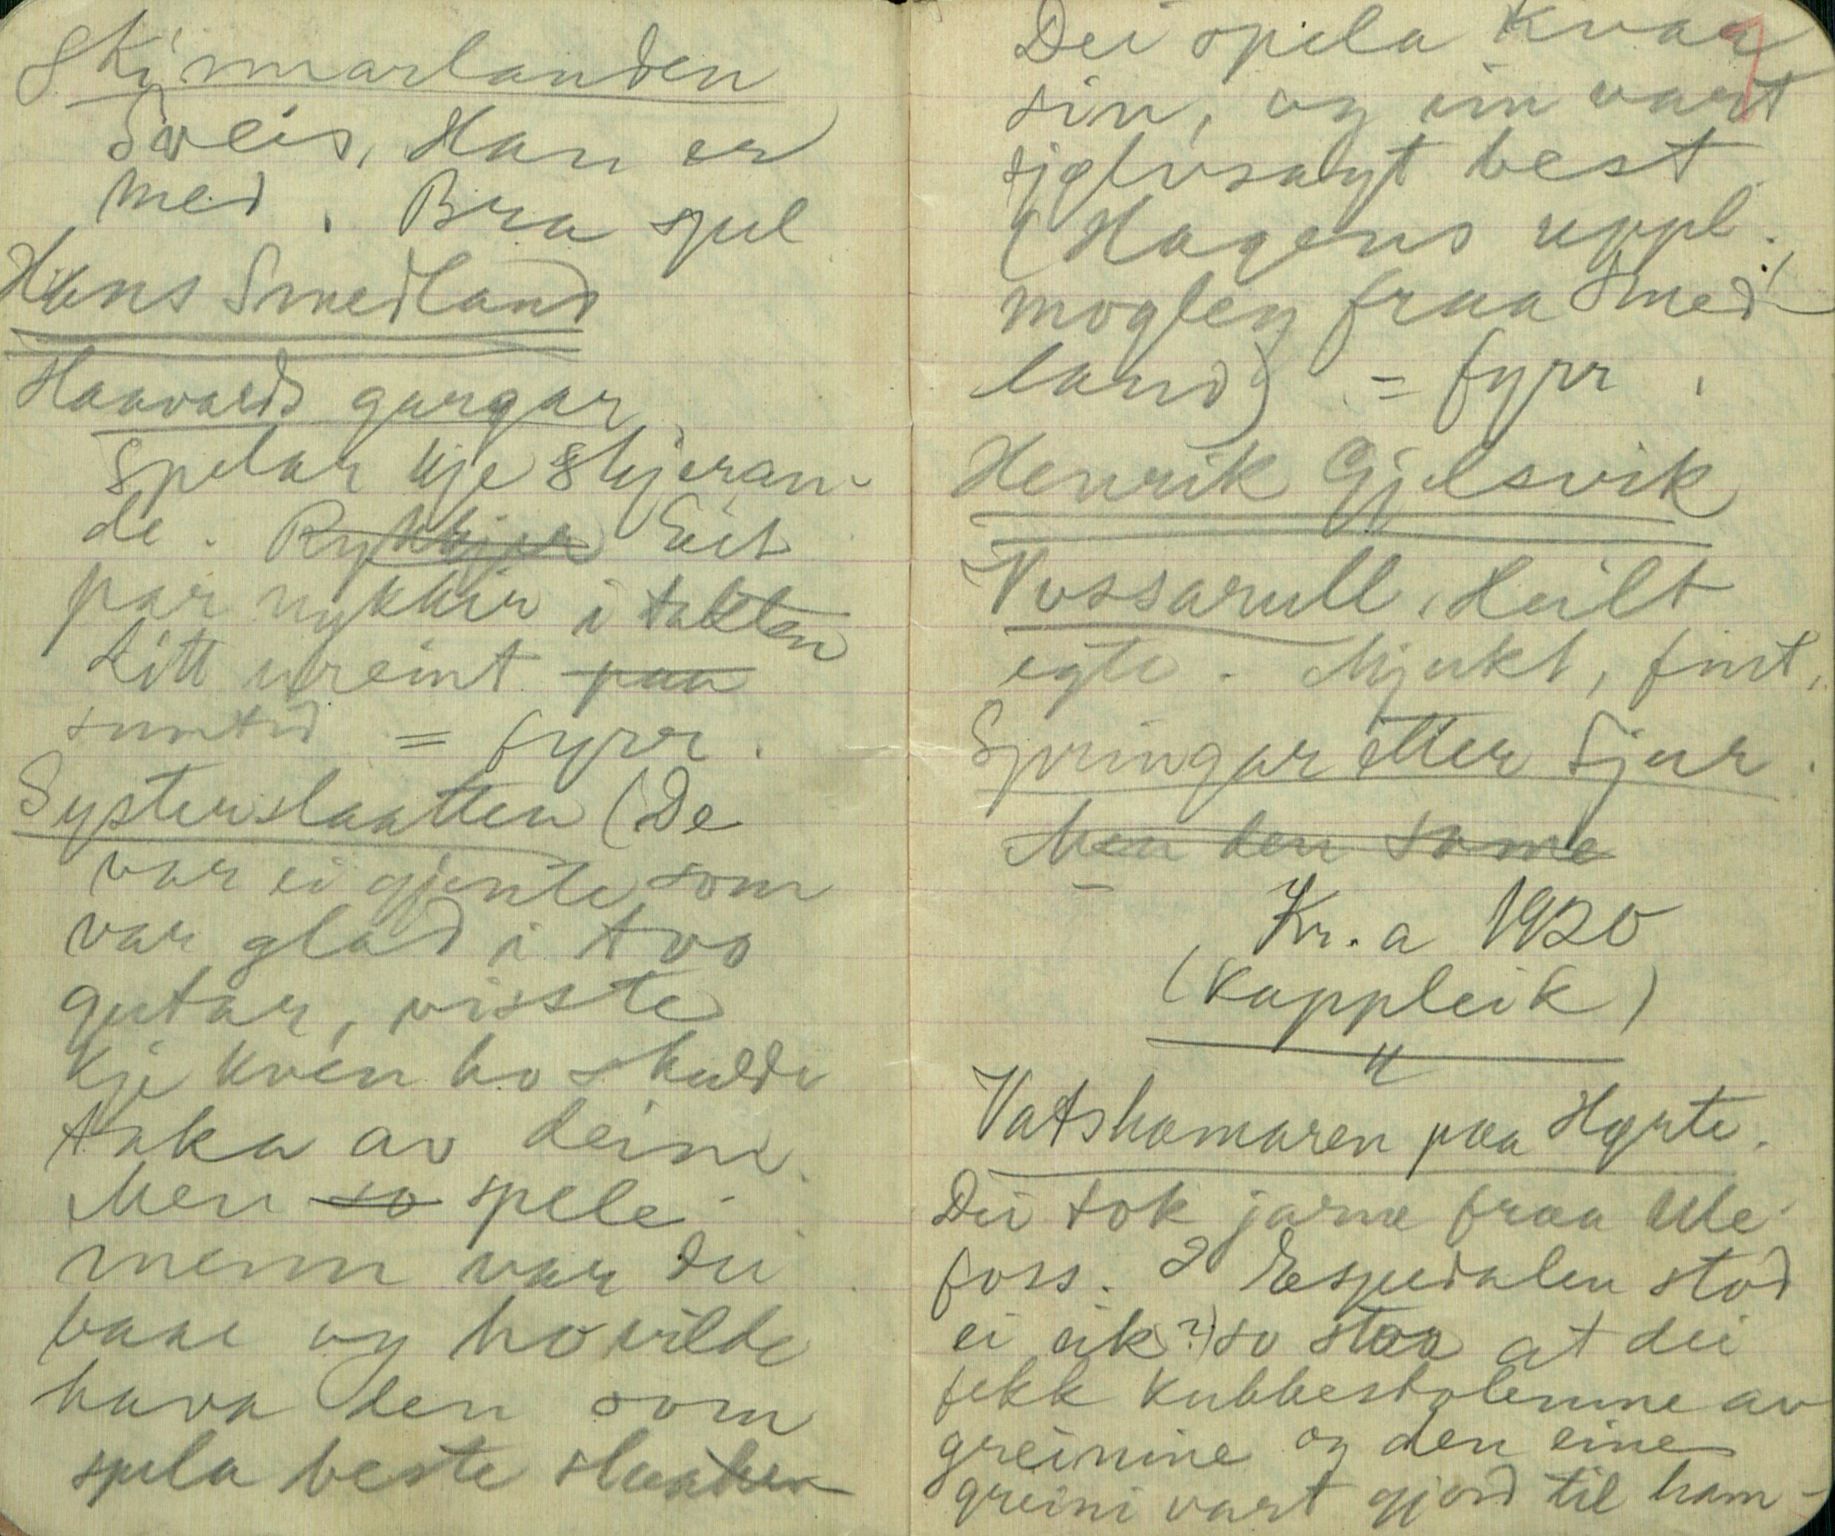 Skinnarlanden
Sveis, Han er
med. Bra spel
Hans Smedland
Haavards gangar
Spelar kje skjeran-
de. Rykkjer Eit
par rykkir i takten
Litt ureint paa
sumtid = fyrr.
Systerslaatten (De
var ei gjente som
var glad i tvo
gutar, visste
kje kven ho skulde
taka av deim.
Men so spele-
menn var dei
baae og ho vilde
hava den som
spela beste slaatten
Dei spela kvaa
sin, og ein vart
sjølvsagt best
(Hagens uppl.
mogleg fraa Smed-
land) = fyrr.
Henrik Gjelsvik
Vossarull, Heilt
egte. Mjukt, fint,
Springar etter Sjur.
Men den same
Kr.a 1920
(Kappleik)
Vatshamaren paa Hyrte.
Dei tok jarne fraa Ule-
foss. I Espedalen stod
ei eik ?) so stor at dei
fekk kubbestolenne av
greinine og den eine
greini vart gjord til ham-